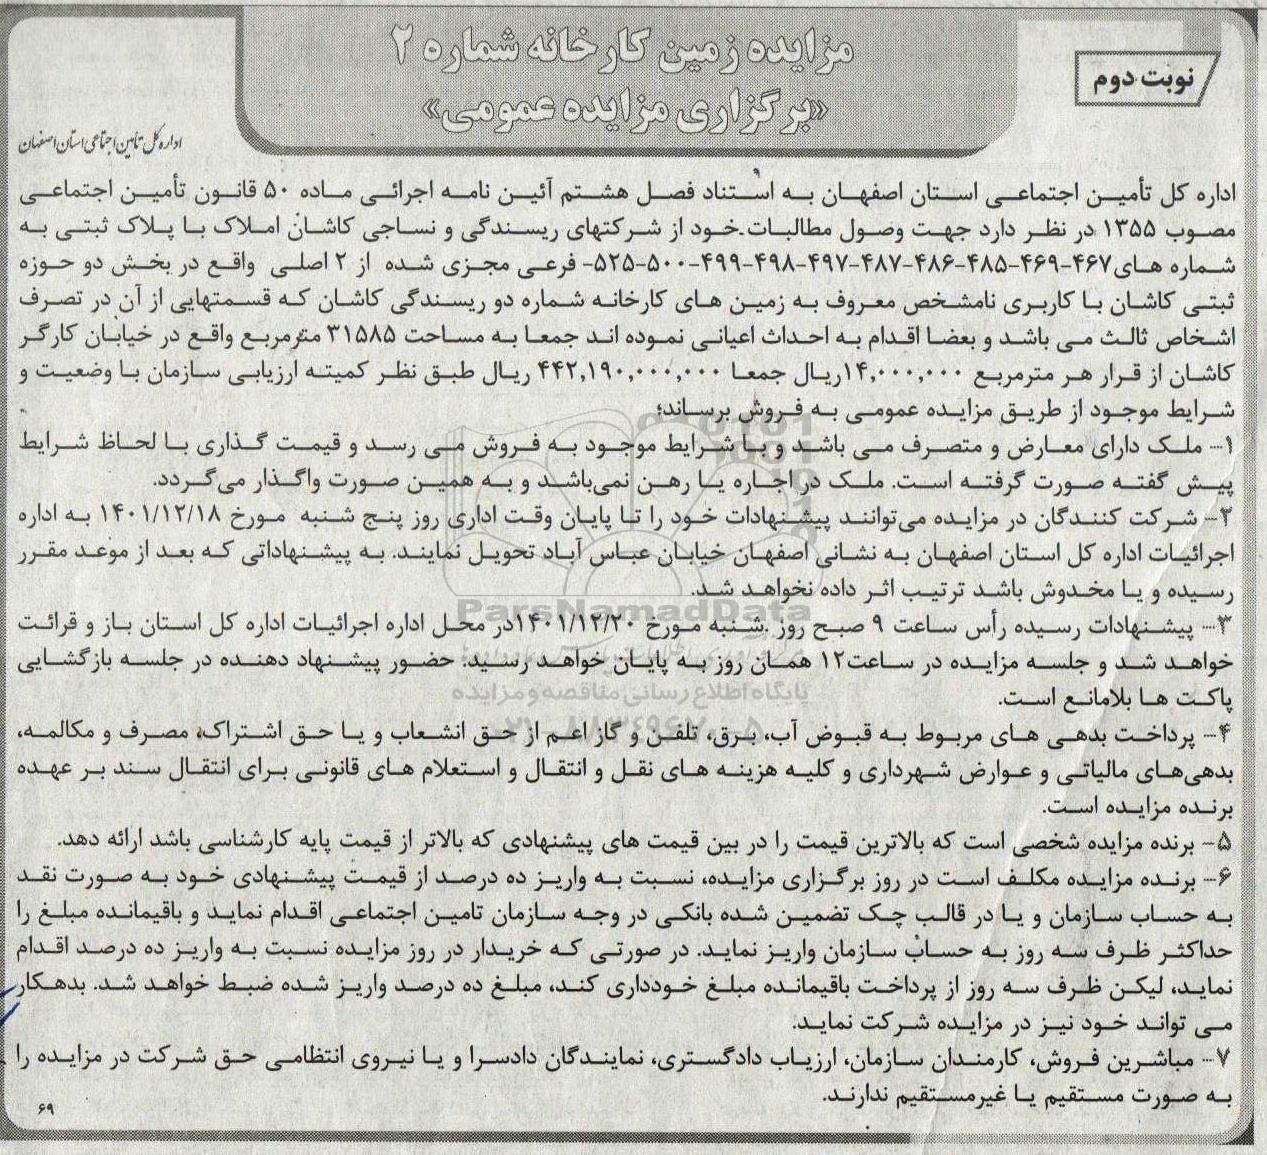 مزایده زمین کارخانه شماره ۲
«برگزاری مزایده عمومی»
نوبت دوم
اداره کل تأمین اجتماعی استان اصفهان
اداره کل تأمین اجتماعی استان اصفهان به استناد فصل هشتم آئین نامه اجرائی ماده ۵۰ قانون تأمین اجتماعی
مصوب ۱۳۵۵ در نظر دارد جهت وصول مطالبات خود از شرکتهای ریسندگی و نساجی کاشان املاک با پلاک ثبتی به
شماره های ۴۶۷-۴۶۹-۴۸۵-۴۸۶-۴۸۷-۴۹۷-۴۹۸-۴۹۹-۵۰۰-۵۲۵- فرعی مجزی شده از ۲ اصلی واقع در بخش دو حوزه
ثبتی کاشان با کاربری نامشخص معروف به زمین های کارخانه شماره دو ریسندگی کاشان که قسمتهایی از آن در تصرف
اشخاص ثالث می باشد و بعضا اقدام به احداث اعیانی نموده اند جمعا به مساحت ۳۱۵۸۵ مترمربع واقع در خیابان کارگر
کاشان از قرار هر مترمربع ۱۴,۰۰۰,۰۰۰ریال جمعا ۴۴۲,۱۹۰,۰۰۰,۰۰۰ ریال طبق نظر کمیته ارزیابی سازمان با وضعیت و
شرایط موجود از طریق مزایده عمومی به فروش برساند؛
۱- ملک دارای معارض و متصرف می باشد و با شرایط موجود به فروش می رسد و قیمت گذاری با لحاظ شرایط
پیش گفته صورت گرفته است. ملک در اجاره یا رهن نمی‌باشد و به همین صورت واگذار می‌گردد.
۲- شرکت کنندگان در مزایده می‌توانند پیشنهادات خود را تا پایان وقت اداری روز پنج شنبه مورخ ۱۴۰۱/۱۲/۱۸ به اداره
اجرائیات اداره کل استان اصفهان به نشانی اصفهان خیابان عباس آباد تحویل نمایند. به پیشنهاداتی که بعد از موعد مقرر
رسیده و یا مخدوش باشد ترتیب اثر داده نخواهد شد.
ParsNamadData
۳- پیشنهادات رسیده رأس ساعت ۹ صبح روز شنبه مورخ ۱۴۰۱/۱۲/۲۰در محل اداره اجرائیات اداره کل استان باز و قرائت
خواهد شد و جلسه مزایده در ساعت۱۲ همان روز به پایان خواهد رسید. حضور پیشنهاد دهنده در جلسه بازگشایی
پاکت ها بلامانع است.
پایگاه اطلاع رسانی مناقصه و مزایده
۴- پرداخت بدهی های مربوط به قبوض آب، برق، تلفن و گاز اعم از حق انشعاب و یا حق اشتراک، مصرف و مکالمه،
بدهی‌های مالیاتی و عوارض شهرداری و کلیه هزینه های نقل و انتقال و استعلام های قانونی برای انتقال سند بر عهده
برنده مزایده است.
۵- برنده مزایده شخصی است که بالاترین قیمت را در بین قیمت های پیشنهادی که بالاتر از قیمت پایه کارشناسی باشد ارائه دهد.
۶- برنده مزایده مکلف است در روز برگزاری مزایده، نسبت به واریز ده درصد از قیمت پیشنهادی خود به صورت نقد
به حساب سازمان و یا در قالب چک تضمین شده بانکی در وجه سازمان تامین اجتماعی اقدام نماید و باقیمانده مبلغ را
حداکثر ظرف سه روز به حساب سازمان واریز نماید. در صورتی که خریدار در روز مزایده نسبت به واریز ده درصد اقدام
نماید، لیکن ظرف سه روز از پرداخت باقیمانده مبلغ خودداری کند، مبلغ ده درصد واریز شده ضبط خواهد شد. بدهکار
می تواند خود نیز در مزایده شرکت نماید.
۷- مباشرین فروش، کارمندان سازمان، ارزیاب دادگستری، نمایندگان دادسرا و یا نیروی انتظامی حق شرکت در مزایده را
به صورت مستقیم یا غیرمستقیم ندارند.
۶۹